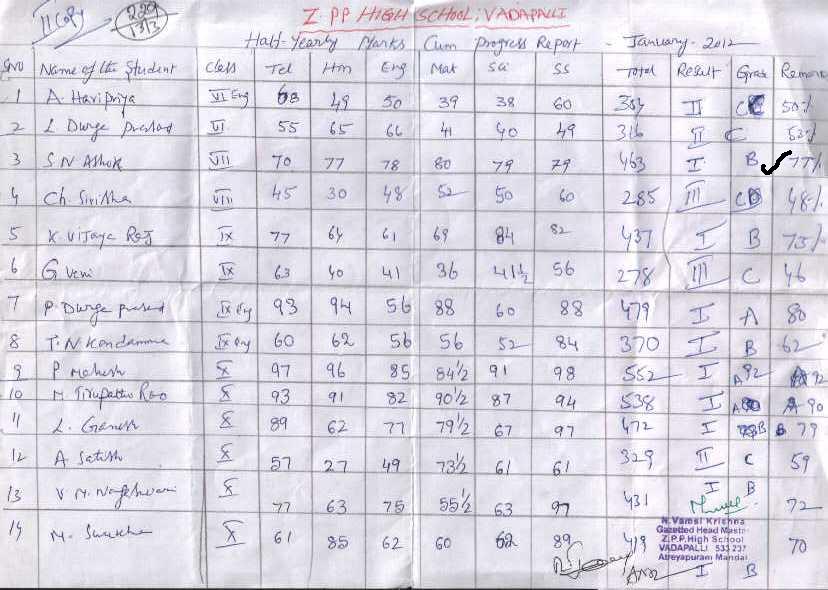 II Copy
229
13/3
Z.PP HIGH SCHOOL; VADAPALLI
Half-Yearly Marks Cum Progress Report - January-2012
SNO Name of the Student Class Tel Hin Eng Mat Sci SS Total Result Grade Remark
1 A. Haripriya VI Eng 68 49 50 39 38 60 304 II C 50%
2 L. Durga prasad VI 55 65 66 41 40 49 316 II C 52%
3 S N Ashok VII 70 77 78 80 79 79 463 I B ✓ 77%
4 Ch. Sirisha VIII 45 30 48 52 50 60 285 III C 48%
5 K. Vijaya Raj IX 77 64 61 69 84 82 437 I B 73%
6 G Veni IX 63 40 41 36 41½ 56 278 III C 46
7 P. Durga prasad IX Eng 93 94 56 88 60 88 479 I A 80
8 T. N Kondamma IX Eng 60 62 56 56 52 84 370 I B 62
9 P Mahesh X 97 96 85 84½ 91 98 552 I A 92 A 92
10 M. Tirupatho Rao X 93 91 82 90½ 87 94 538 I A A-90
11 L. Ganesh X 89 62 77 79½ 67 97 472 I B B 79
12 A Satish X 57 27 49 73½ 61 61 329 II C 59
13 V M. Nageshwari X 77 63 75 55½ 63 97 431 I B 72
14 M. X 61 85 62 60 62 89 419 I B 70
N. Vamsi Krishna
Gazetted Head Mastr
Z.P.P.High School
VADAPALLI 533 237
Atreyapuram Mandal